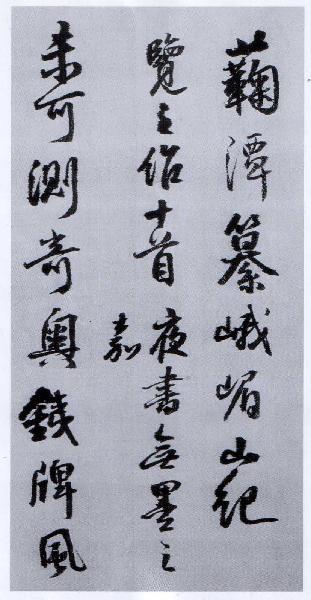 蘜潭纂峨嵋山紀
覽之十首
夜書無墨之
嘉
未可測奇奧鐵牌風